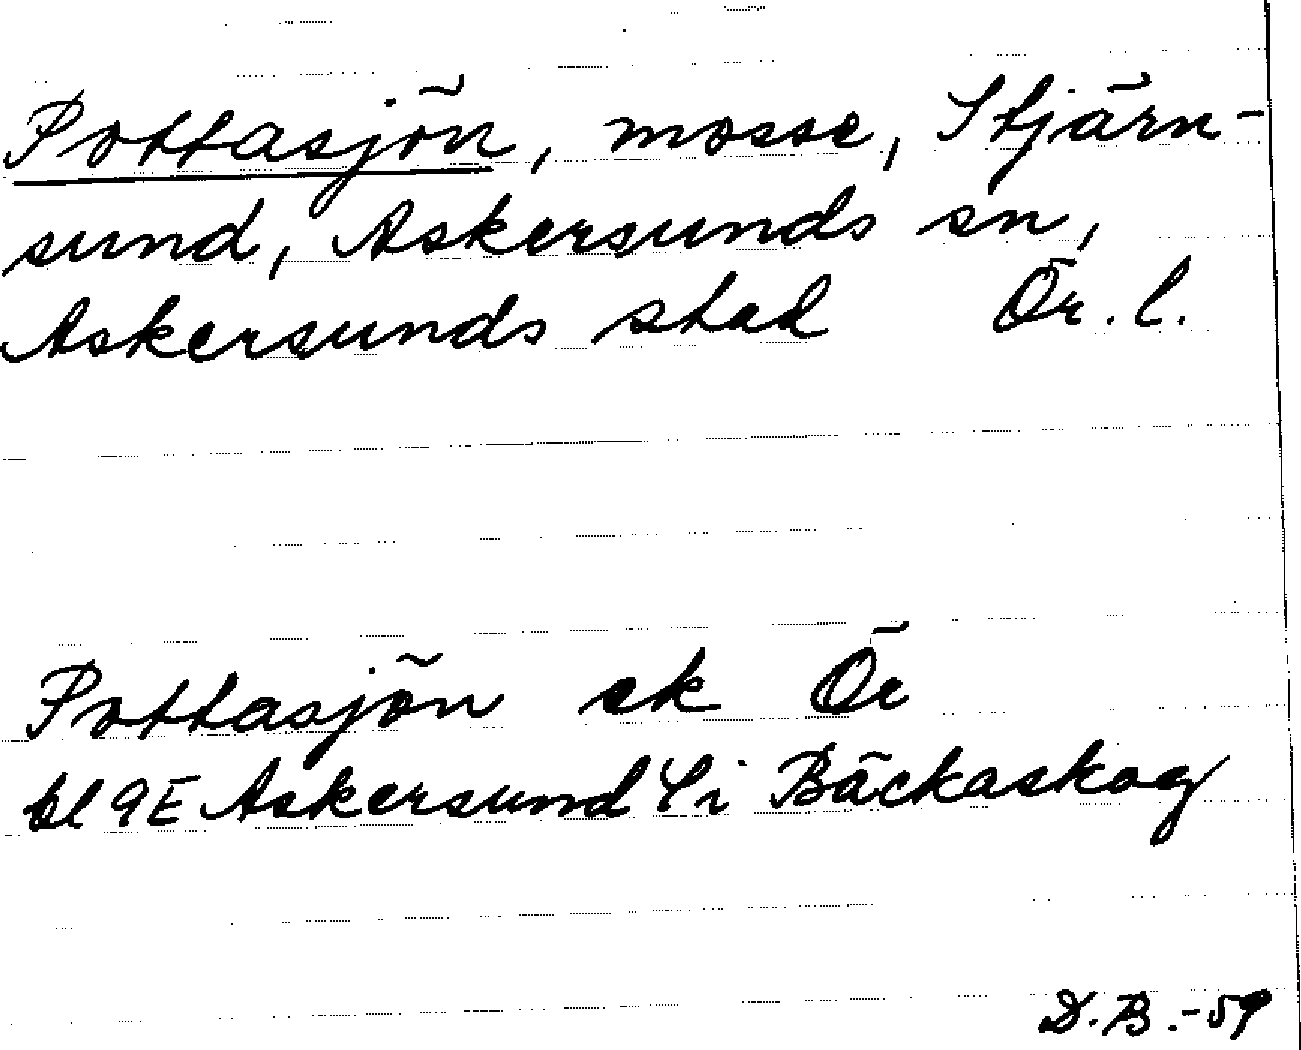 Pottasjön, mosse, Stjärn-
sund, Askersunds sn,
Askersunds stad Ör. l.
Pottasjön ek Ör
bl 9E Askersund 4i Bäckaskog
D.B.-59